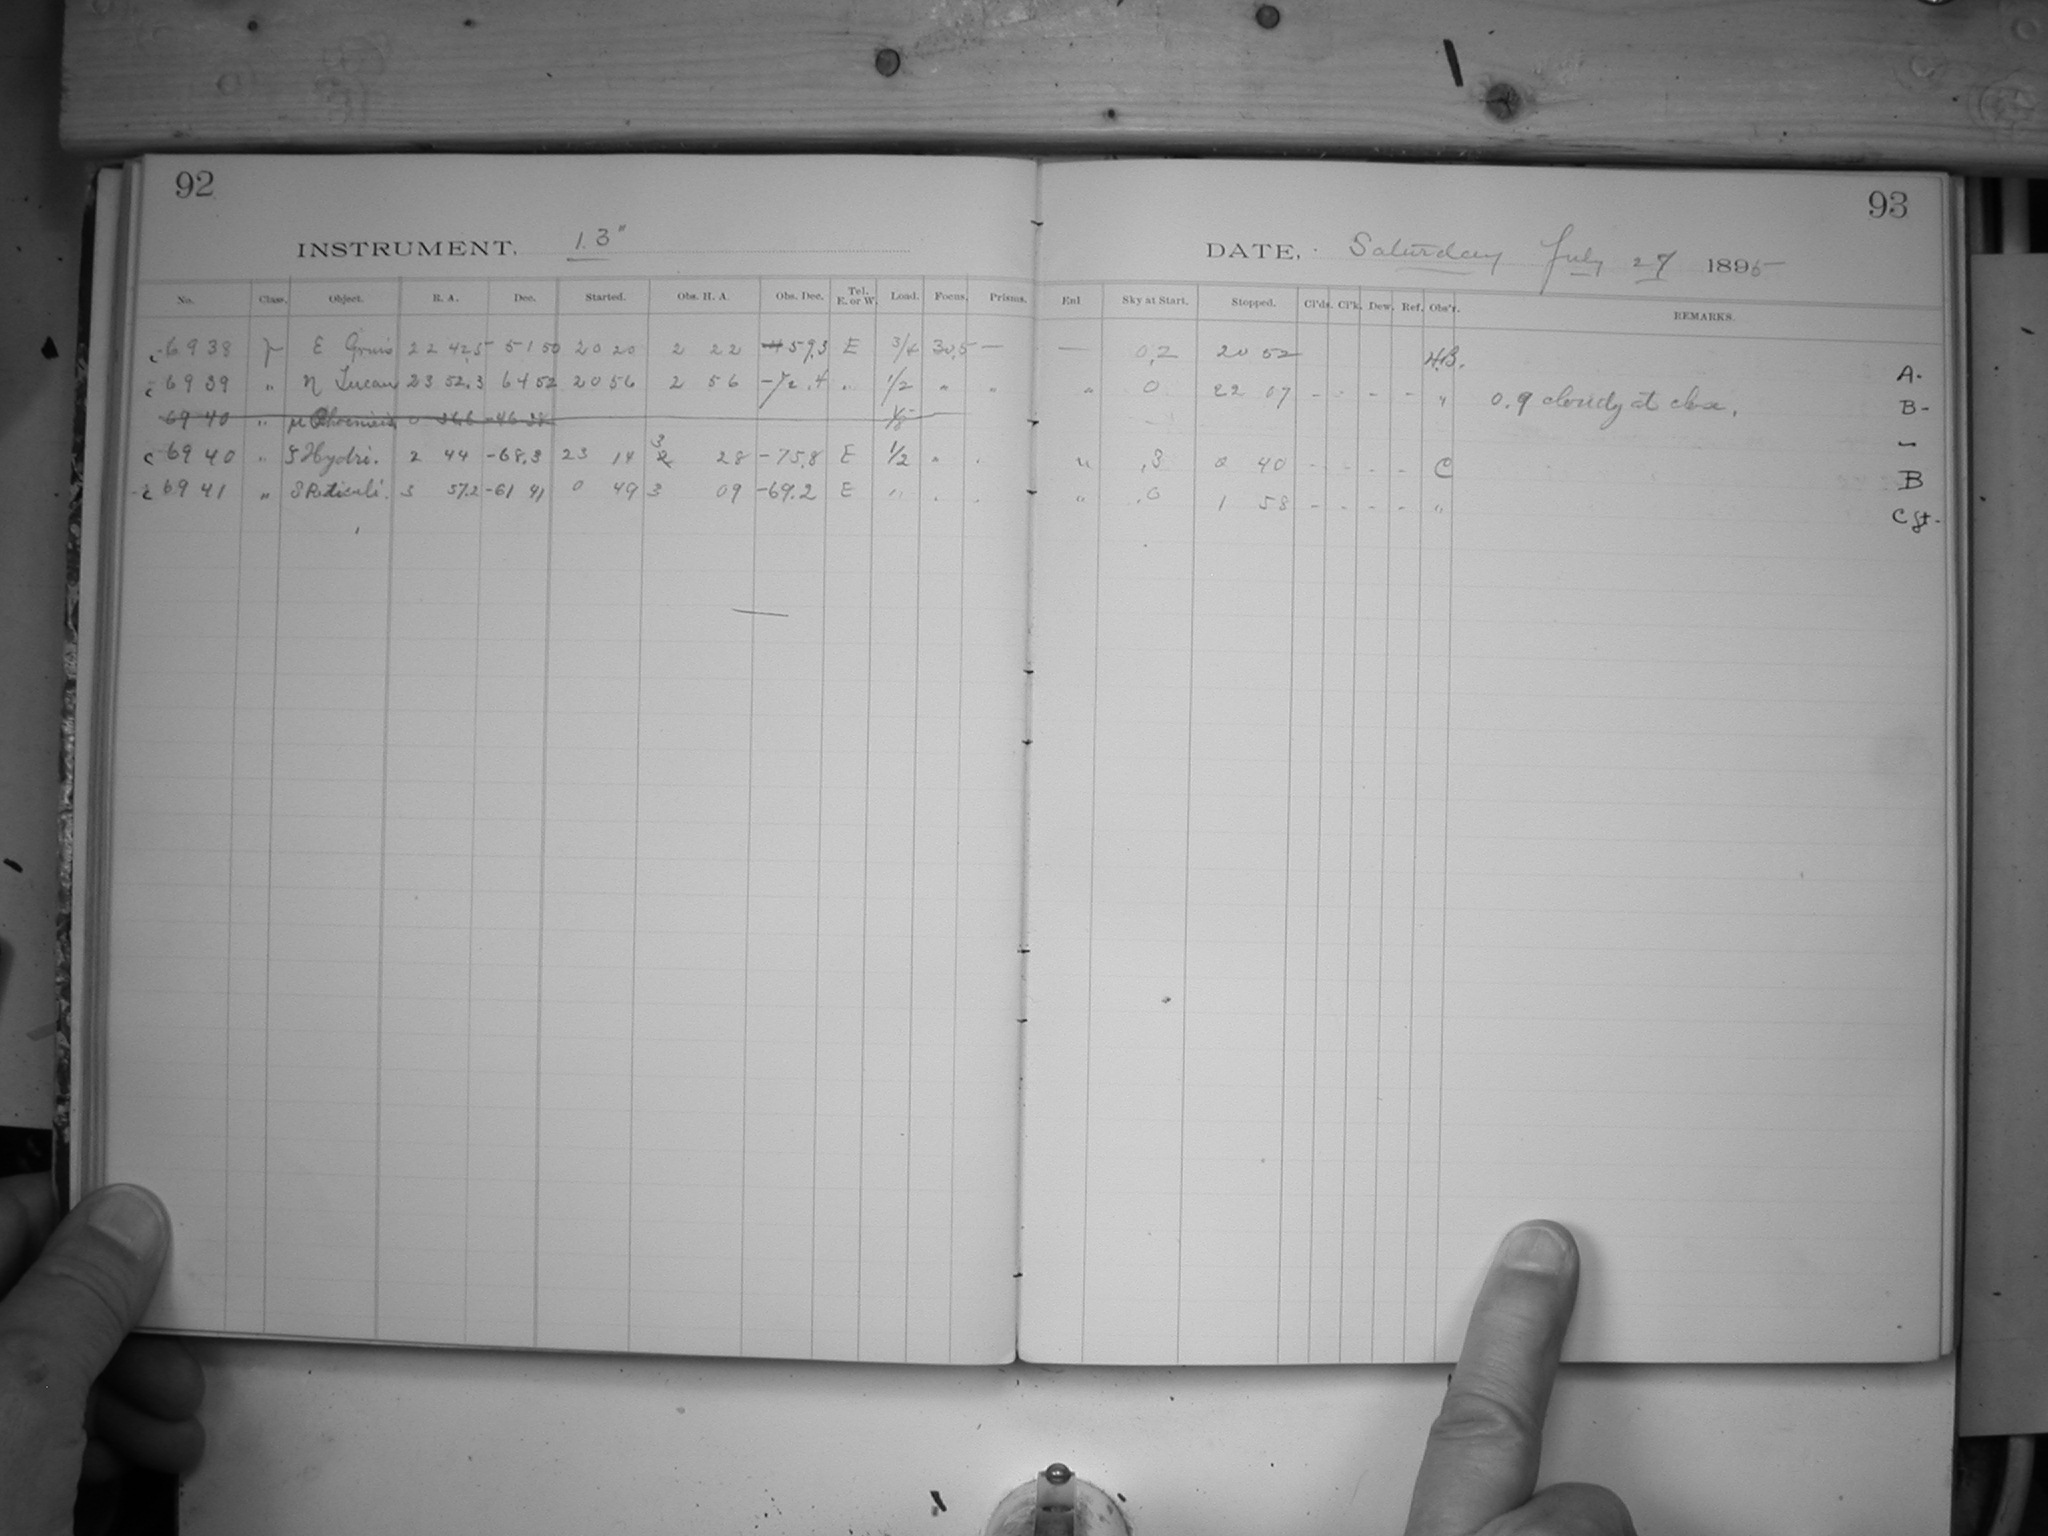 92
93
INSTRUMENT. 13"
DATE. Saturday July 27 1895
No. Class. Object. R. A. Dec. Started. Obs. H. A. Obs. Dec. Tel. E. or W. Load. Focus. Prisms. Exl Sky at Start. Stopped. Cl'ds. Cl'k. Dew. Ref. Obs'r. REMARKS.
c 6938 E Gruis 22 42.5 51 50 20 20 2 22 59.3 E 3/4 30.5 — — 0.2 20 52 H.B. A-
c 6939 " η Tucan 23 52.3 64 52 20 56 2 56 -72.4 " 1/2 " " " 0 22 07 - - - - " 0.9 cloudy at close. B-
6940 " μ Phoenicis 0 36.6 -46 38 —
c 6940 " Hydri. 2 44 -68.3 23 14 3 28 -75.8 E 1/2 " . " .3 0 40 - - - - C B
c 6941 " Reticuli. 3 57.2 -61 41 0 49 3 09 -69.2 E " . . " .0 1 58 - - - - " C st.